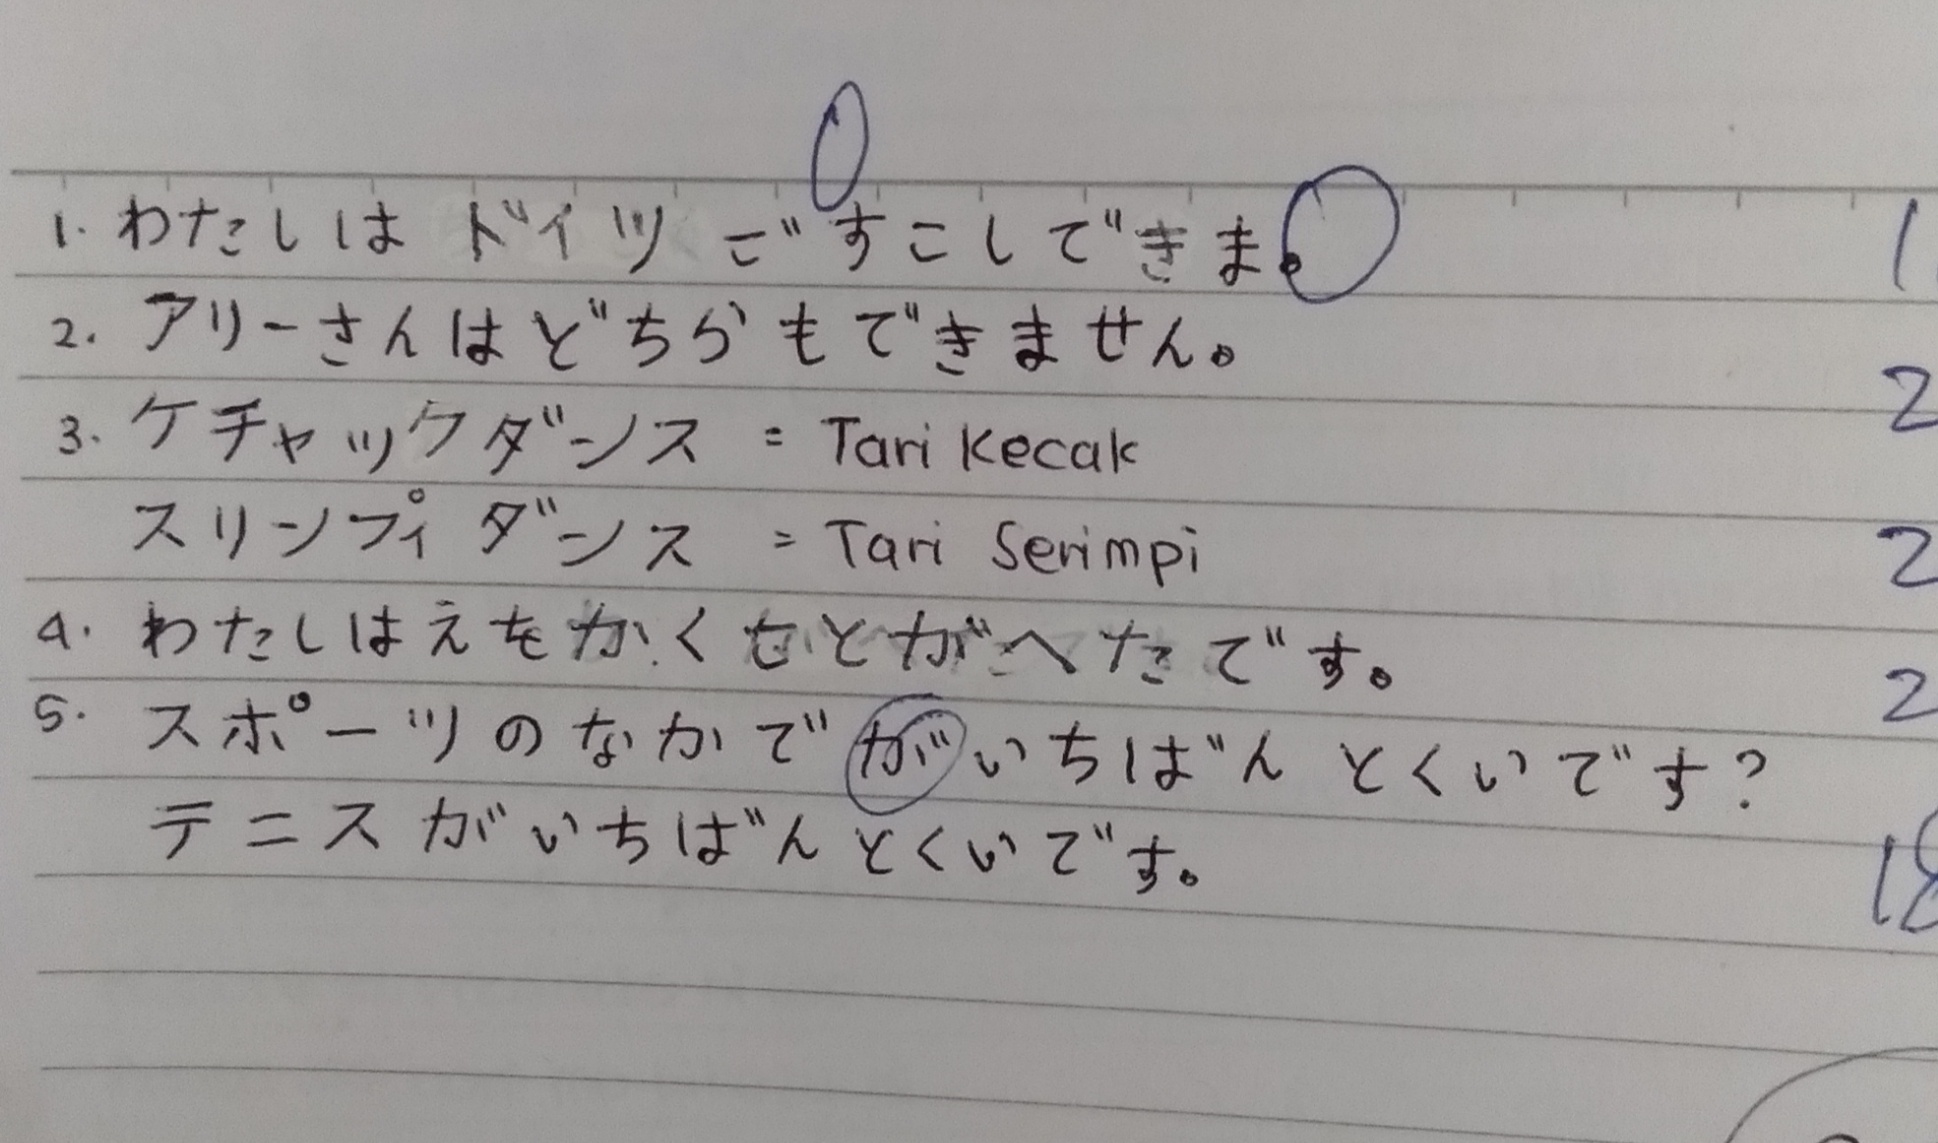 1. わたしは ドイツ ごすこしできま。 1
2. アリーさんはどちらもできません。 2
3. ケチャックダンス = Tari Kecak
スリンピィ ダンス = Tari Serimpi 2
4. わたしはえをかくもとがへたです。 2
5. スポーツのなかでがいちばんとくいです?
テニスがいちばんとくいです。